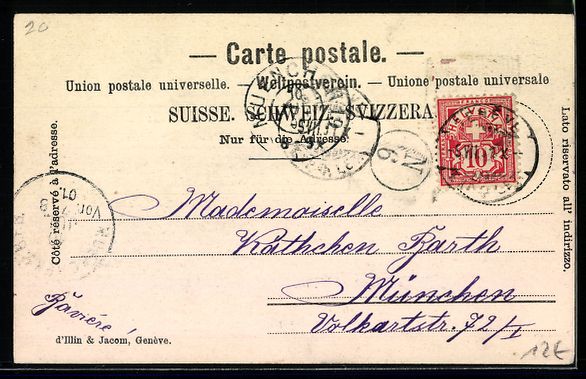 20
— Carte postale. —
Union postale universelle. — Weltpostverein. — Unione postale universale
SUISSE. SCHWEIZ. SVIZZERA
Nur für die Adresse.
Côté réservé à l'adresse.
Lato riservato all' indirizzo.
MÜNCHEN
HELVETIA
FRANCO
10
Mademoiselle
Käthchen Barth
München
Volkartstr. 72/I
Bavière!
d'Illin & Jacom, Genève.
12€